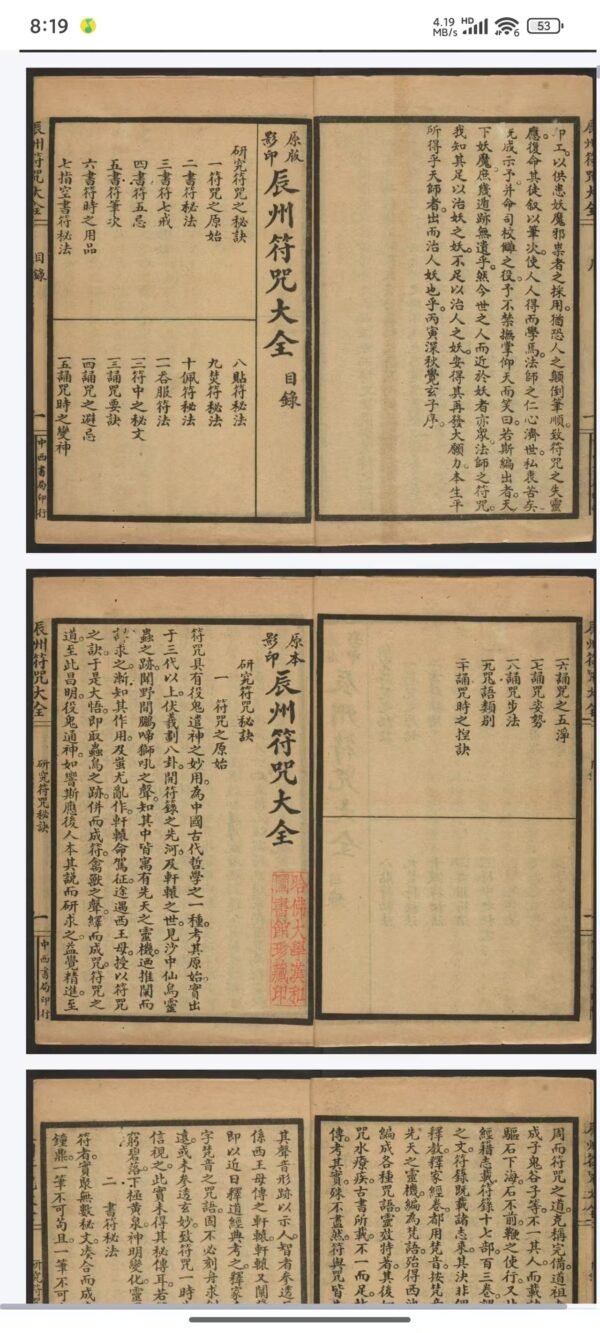 8:19
4.19 MB/s
HD
6
53
印工以供患妖魔邪祟者之採用。猶恐人之顛倒筆順。致符咒之失靈
應。復命其徒叙以筆次。使人人得而學焉。法師之仁心濟世。私衷苦矣。
既成示予。并命司校讎之役。予不禁撫掌仰天而笑曰。若斯編出者。天
下妖魔。庶幾遁跡無遺乎。然今世之人而近於妖者亦衆。法師之符咒。
我知其足以治妖之妖。不足以治人之妖。安得其再發大願力。本生平
所得乎天師者。出而治人妖也乎。丙寅深秋覺玄子序。
原版影印 辰州符咒大全 目錄
研究符咒之秘訣
一符咒之原始
二書符秘法
三書符七戒
四書符五忌
五書符筆次
六書符時之用品
七指空書符秘法
八貼符秘法
九焚符秘法
十佩符秘法
一一吞服符法
一二符中之秘文
一三誦咒要訣
一四誦咒之避忌
一五誦咒時之變神
辰州符咒大全
目錄
一
中西書局印行
一六誦咒之五淨
一七誦咒姿勢
一八誦咒步法
一九咒語類別
二十誦咒時之捏訣
原本影印 辰州符咒大全
哈佛大學漢和圖書館珍藏印
研究符咒秘訣
一 符咒之原始
符咒具有役鬼遣神之妙用。為中國古代哲學之一種。考其原始。實出
于三代以上。伏羲劃八卦。開符籙之先河。及軒轅之世。見沙中仙鳥靈
蟲之跡。聞野間鵬啼獅吼之聲。知其中皆寓有先天之靈機。迺推闡而
求之。漸知其作用。及蚩尤亂作。軒轅命駕征途。遇西王母。授以符咒
之訣。于是大悟。即取蟲鳥之跡。併而成符。禽獸之聲。繹而成咒。符咒之
道至此昌明。役鬼通神。如響斯應。後人本其說而研求之。益覺精進。至
辰州符咒大全
研究符咒秘訣
一
中西書局印行
周而符咒之道。尤稱完備。道祖
成子鬼谷子等。不一其人。而載
驅石下海。石不前。鞭之使行。又
經籍志載。符籙十七部。百三卷
之文。符籙既載諸志乘。其決非
釋教釋家經卷。都用梵音。按梵
先天之靈機。編為梵語。殆得西
編成各種咒語。靈效特著。其後
咒水療疾。古書所載。不一而足
傳。考其實。殊不盡然。符與咒皆
其聲音形跡以示人。智者參透
係西王母傳之軒轅。軒轅又闡
即以近日釋道經典考之。釋家
字梵音之咒語。固不必刻舟求
遠。或未參透玄妙。致符咒一時
信視之。此實未得其秘傳耳。若
窮碧落。下極黃泉。神明變化。靈
二 書符秘法
符者。實聚無數秘文。湊合而成
鐘鼎。一筆不可苟。且一筆不可